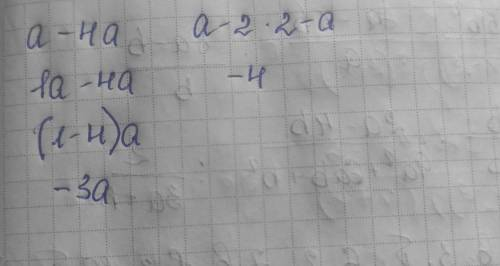 a - 4a
1a - 4a
(1-4)a
-3a
a - 2 · 2 - a
-4